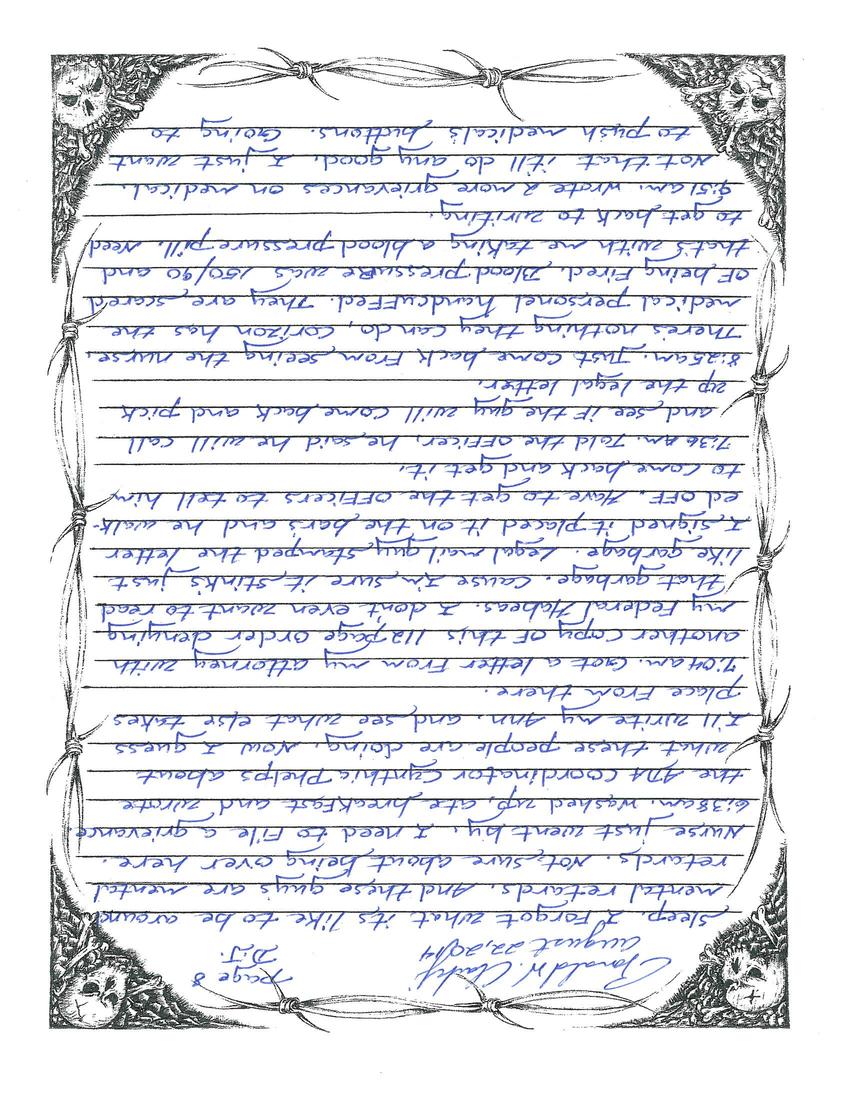 Ronald W. Clark Jr
Page 8
August 22, 2014
D.J.
sleep. I forgot what its like to be around
mental retards. And these guys are mental
retards. Not sure about being over here.
Nurse just went by. I need to file a grievance.
6:38am. Washed up, ate breakfast and wrote
the ADA Coordinator Cynthia Phelps about
what these people are doing. Now I guess
I'll write my Ann. and see what else takes
place from there.
7:04am. Got a letter from my attorney with
another copy of this 112 page order denying
my Federal Habeas. I don't even want to read
that garbage. Cause I'm sure it stinks just
like garbage. Legal mail guy stamped the letter
I signed it placed it on the bars and he walk-
ed off. Have to get the officers to tell him
to come back and get it.
7:36 am. Told the officer, he said he will call
and see if the guy will come back and pick
up the legal letter.
8:25am. Just come back from seeing the nurse,
There's nothing they can do, Corizon has the
medical personel handcuffed. They are scared
of being fired. Blood pressure was 150/90 and
that's with me taking a blood pressure pill. Need
to get back to writing.
9:51am. wrote 2 more grievances on medical.
Not that it'll do any good. I just want
to push medicals buttons. Going to